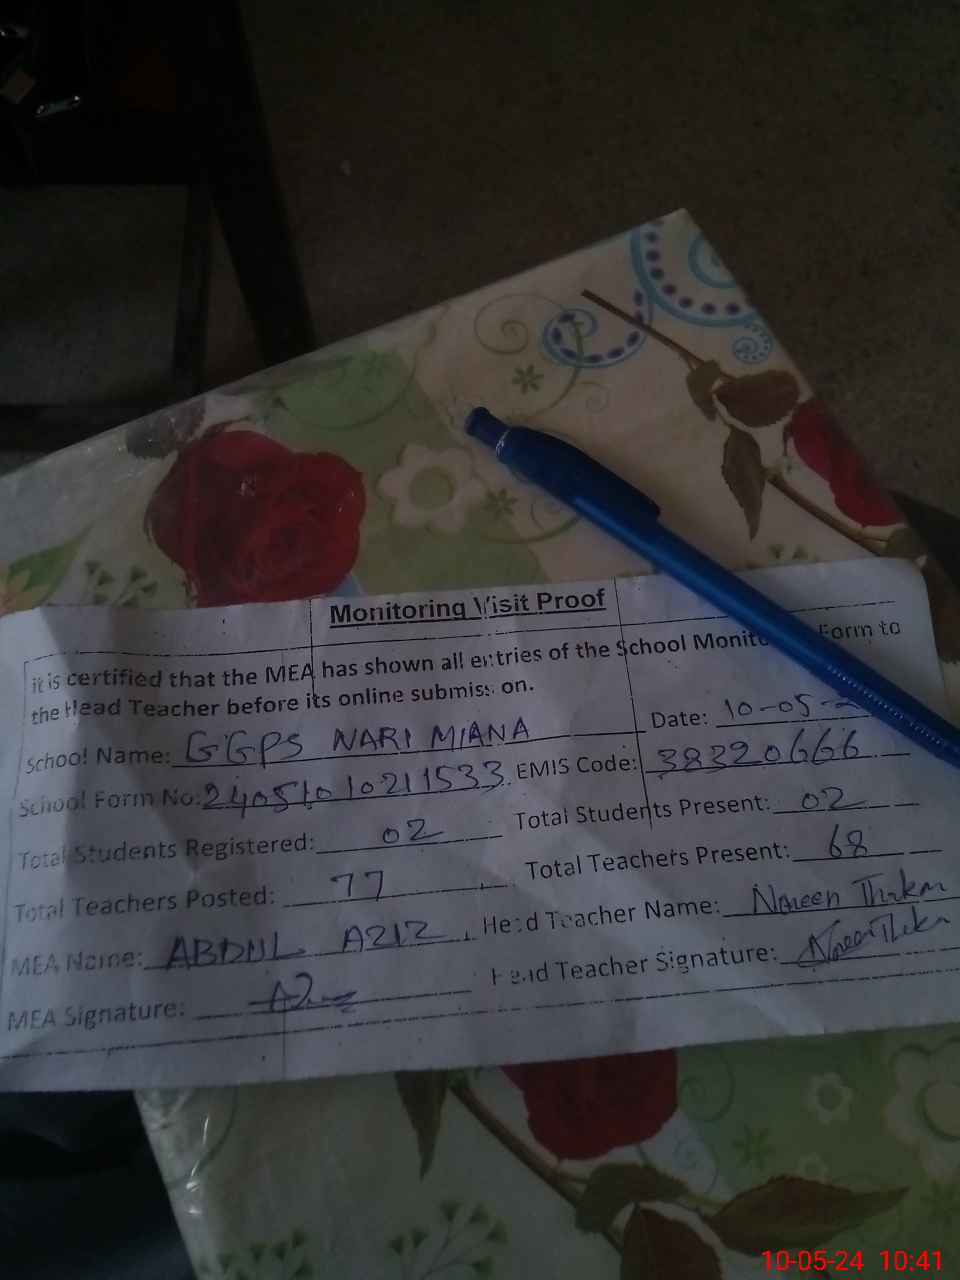 Monitoring Visit Proof
it is certified that the MEA has shown all entries of the School Form to
the Head Teacher before its online submission.
School Name: GGPS NARI MIANA Date: 10-05-2
School Form No: 24051010211533 EMIS Code: 38320666
Total Students Registered: 02 Total Students Present: 02
Total Teachers Posted: 77 Total Teachers Present: 68
MEA Name: ABDUL AZIZ Head Teacher Name:
MEA Signature: Head Teacher Signature:
10-05-24 10:41